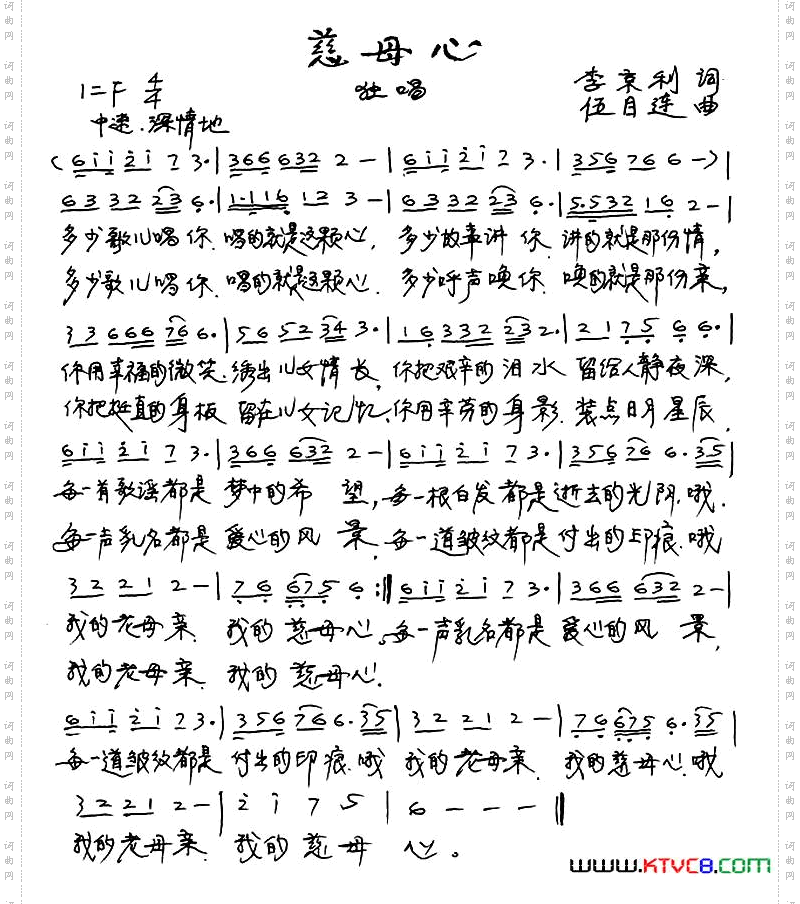 慈母心
1=F 4/4
独唱
李京利 词
伍目连 曲
中速.深情地
(6 i i 2 i 7 3·|3 6 6 6 3 2 2 —|6 i i 2 i 7 3·|3 5 6 7 6 6 —)|
6 3 3 2 2 3 6·|1·1 1 6 1 2 3 —|6 3 3 2 2 3 6·|5·5 3 2 1 6 2 —|
多少歌儿唱你.唱的就是这颗心, 多少故事讲你.讲的就是那份情,
多少歌儿唱你.唱的就是这颗心. 多少呼声唤你.唤的就是那份亲,
3 3 6 6 6 7 6 6·|5 6 5 2 3 4 3·|1 6 3 3 2 2 3 2·|2 1 7 5 6 6·|
你用幸福的微笑.绣出儿女情长,你把艰辛的泪水 留给人静夜深,
你把挺直的身板 留在儿女记忆,你用辛劳的身影.装点日月星辰,
6 i i 2 i 7 3·|3 6 6 6 3 2 2 —|6 i i 2 i 7 3·|3 5 6 7 6 6·3 5|
每一首歌谣都是 梦中的希 望,每一根白发都是逝去的光阴.哦.
每一声乳名都是 爱心的风 景,每一道皱纹都是付出的印痕.哦
3 2 2 1 2 —|7 6 6 7 5 6 :‖6 i i 2 i 7 3·|3 6 6 6 3 2 2 —|
我的老母亲. 我的慈母心。每一声乳名都是 爱心的风 景,
我的老母亲. 我的慈母心.
6 i i 2 i 7 3·|3 5 6 7 6 6·3 5|3 2 2 1 2 —|7 6 6 7 5 6·3 5|
每一道皱纹都是 付出的印痕.哦 我的老母亲. 我的慈母心.哦
3 2 2 1 2 —|2 i 7 5|6 — — —‖
我的老母亲. 我的慈母 心。
www.KTVC8.com
词曲网